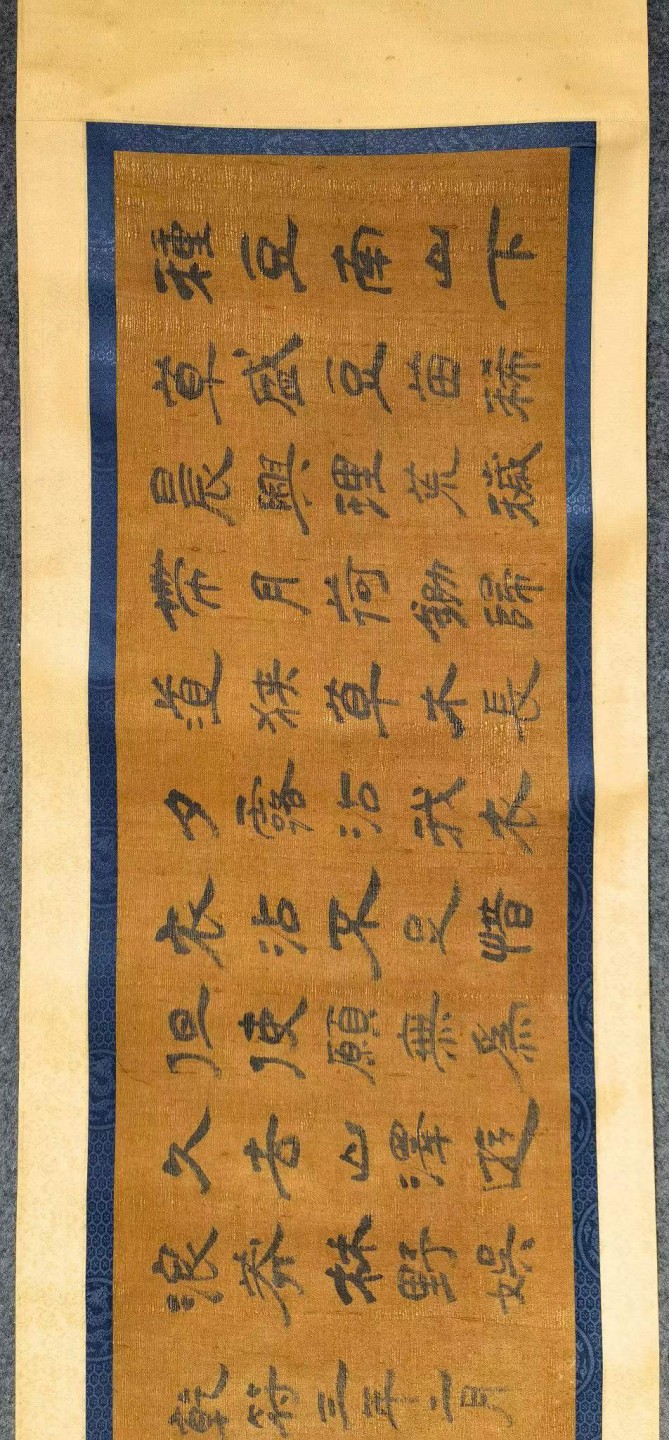 種豆南山下
草盛豆苗稀
晨興理荒穢
帶月荷鋤歸
道狹草木長
夕露沾我衣
衣沾不足惜
但使願無為
久去山澤遊
浪莽林野娛
乾符三年二月